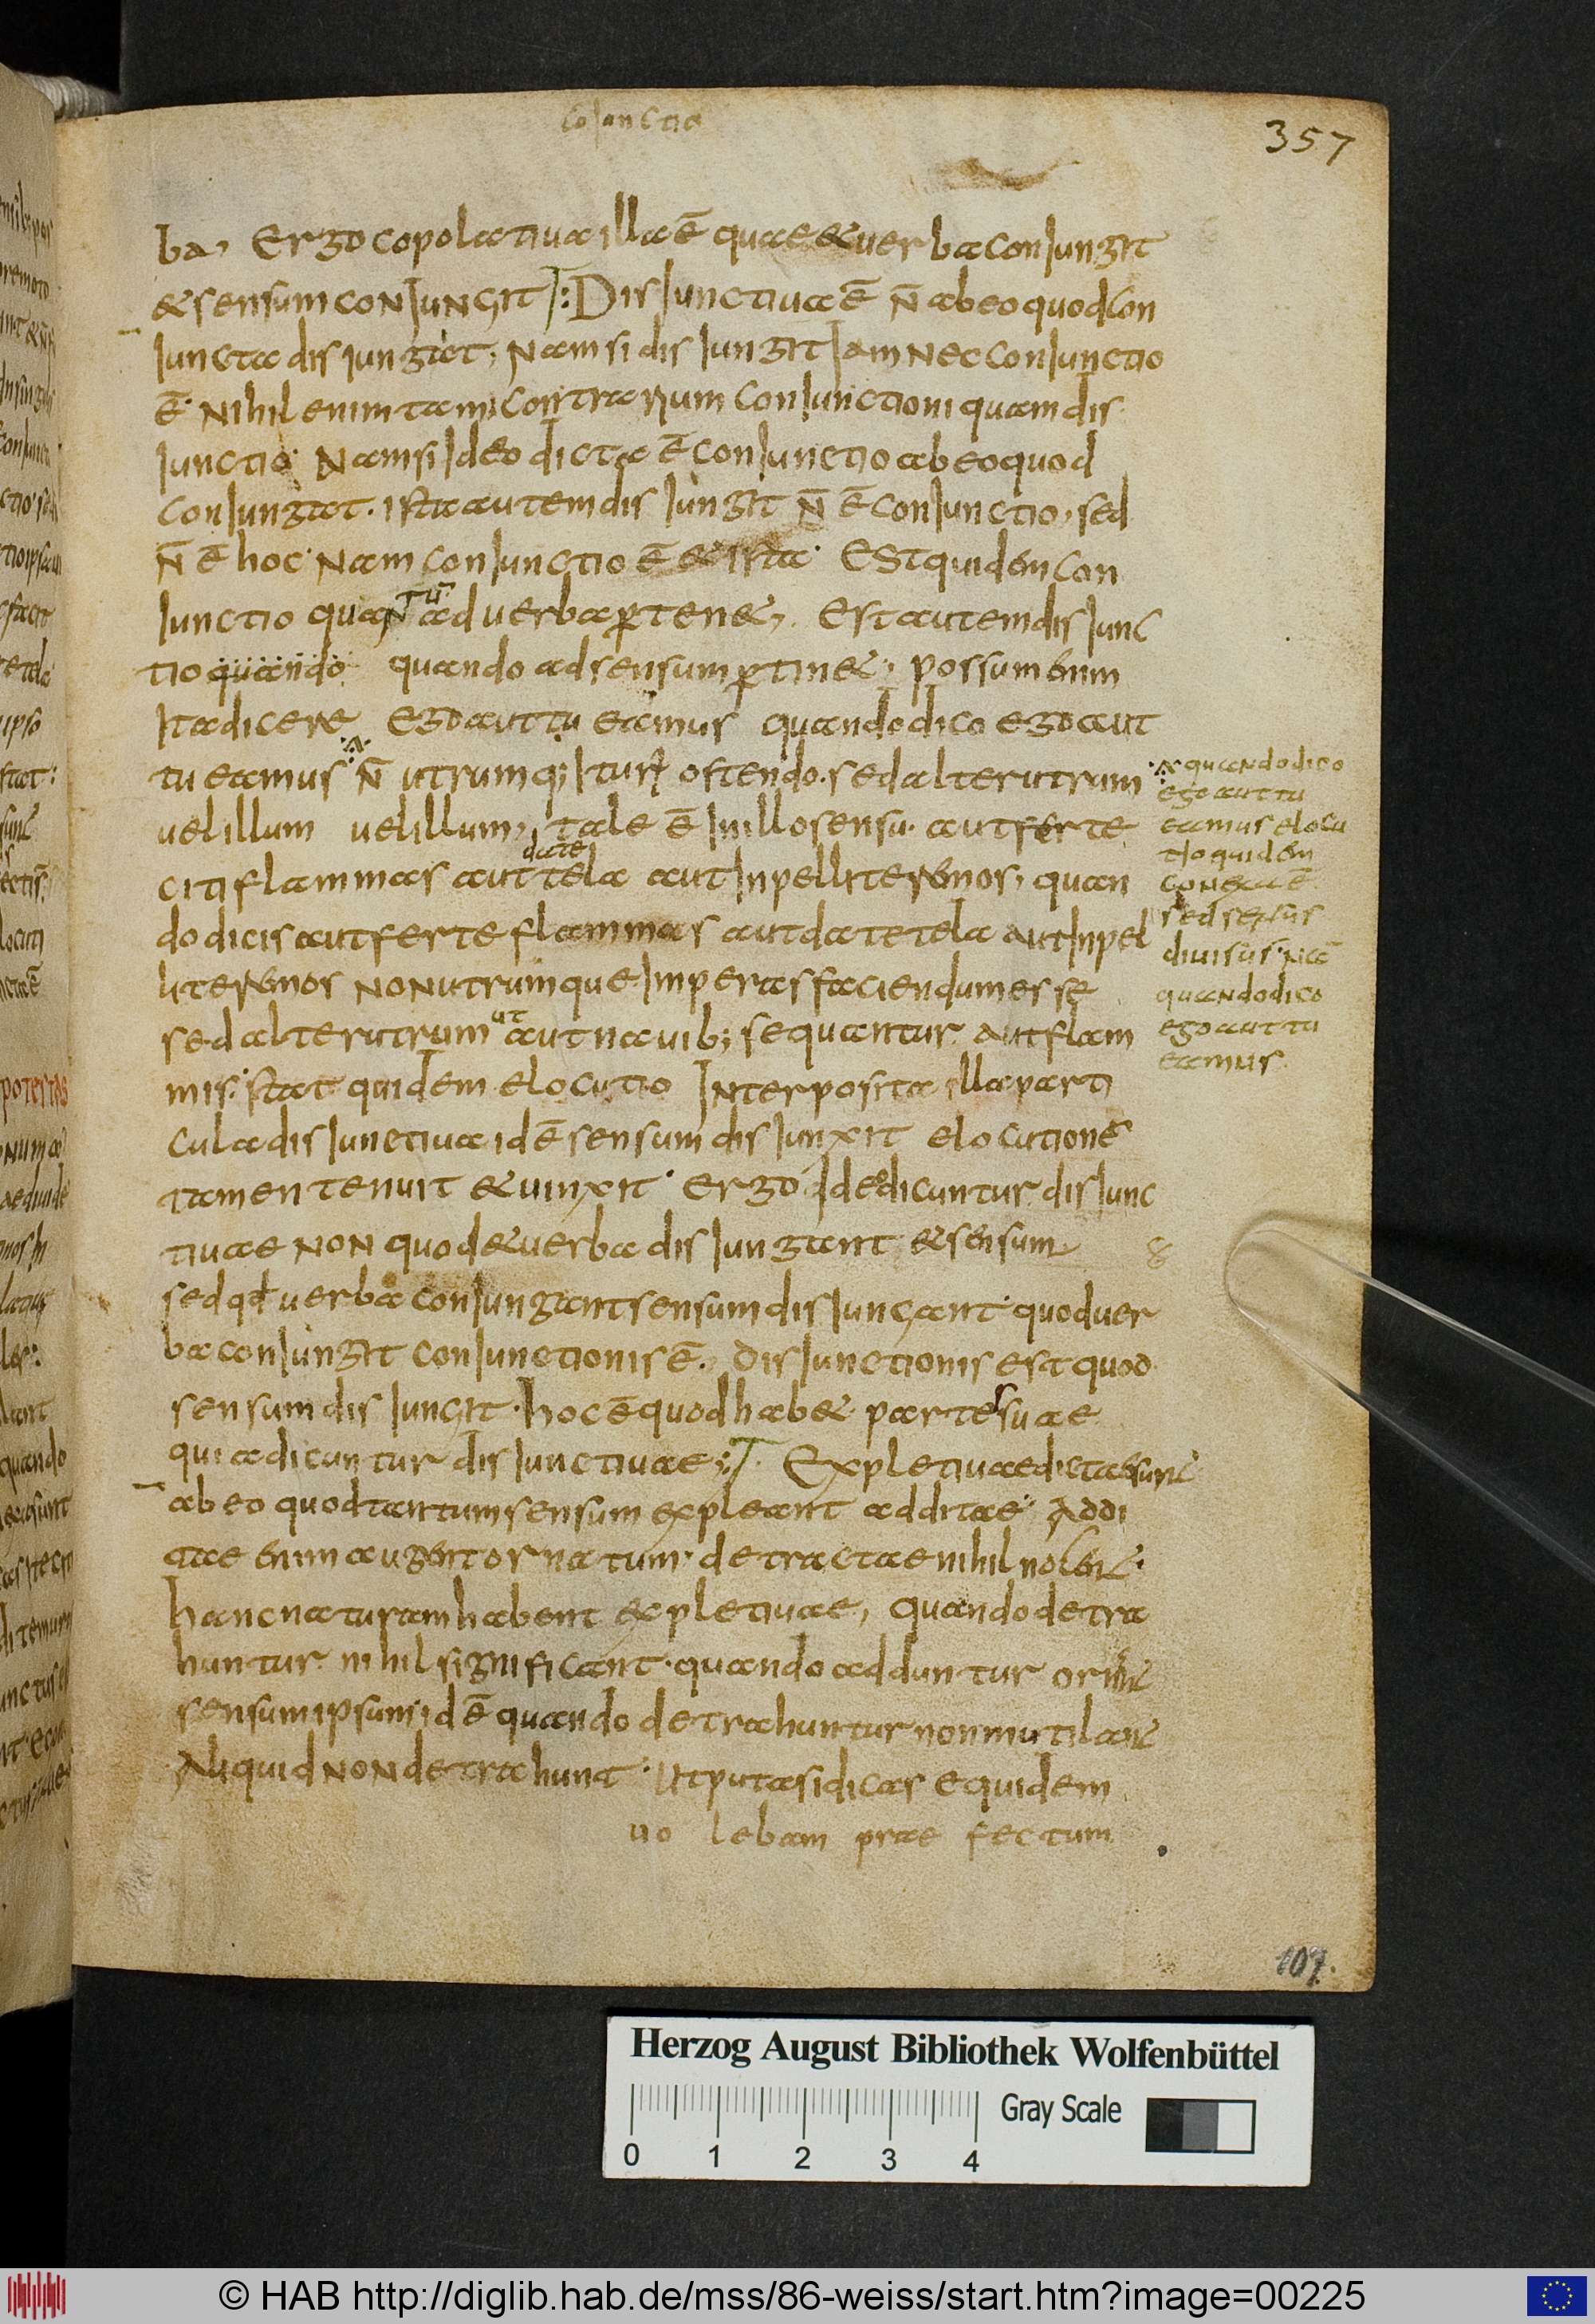 coiunctio
357
ba, Ergo copolatiua illa ē quae & uerba coniungit
& sensum coniungit: Disiunctiua ē n̄ ab eo quod con
iuncta disiungat, nam si disiungit iam nec coniunctio
ē nihil enim tam contrarium coniunctioni quam dis
iunctio. Nam si ideo dicta ē coniunctio ab eo quod
coniungat. ista autem disiungit n̄ ē coniunctio, sed
n̄ ē hoc. Nam coniunctio ē & ista. Est quidem con
iunctio quantū ad uerba ꝑten&, Est autem disiunc
tio quando quando ad sensum ꝑtin&. possum enim
ita dicere ego aut tu eamus quando dico ego aut
tu eamus n̄ utrumq; iturū ostendo. sed alterutrum
uel illum uel illum, tale ē in illo sensu. aut ferte
date
citi flammas aut tela aut inpellite remos, quan
do dicis aut ferte flammas aut date tela aut inpel
lite remos non utrumque imperas faciendum esse
ut
sed alterutrum aut nauib; sequantur aut flam
mis. stat quidem elocutio interposita illa parti
cula disiunctiua id ē sensum disiunxit elocutionē
tamen tenuit & uinxit. Ergo ideo dicuntur disiunc
tiuae non quod & uerba disiungant & sensum
sed qd uerba coniungant sensum disiungant. quod uer
ba coniungit coniunctionis ē. disiunctionis est quod
sensum disiungit. hoc ē quod hab& partes suae
quia dicuntur disiunctiuae: Expletiuae dictae sunt
ab eo quod tantum sensum expleant additae. Addi
tae enim augent ornatum. detractae nihil nocent.
hanc naturam habent expletiuae, quando detra
huntur nihil significant. quando adduntur ornant
sensum ipsum id ē quando detrahuntur non mutilant
Aliquid non detrahunt. ut puta si dicas equidem
uolebam praefectum
quando dico
ego aut tu
eamus elocu
tio quidem
conexa ē
sed sensus
diuisus. nā
quando dico
ego aut tu
eamus
107.
Herzog August Bibliothek Wolfenbüttel
Gray Scale
0 1 2 3 4
© HAB http://diglib.hab.de/mss/86-weiss/start.htm?image=00225